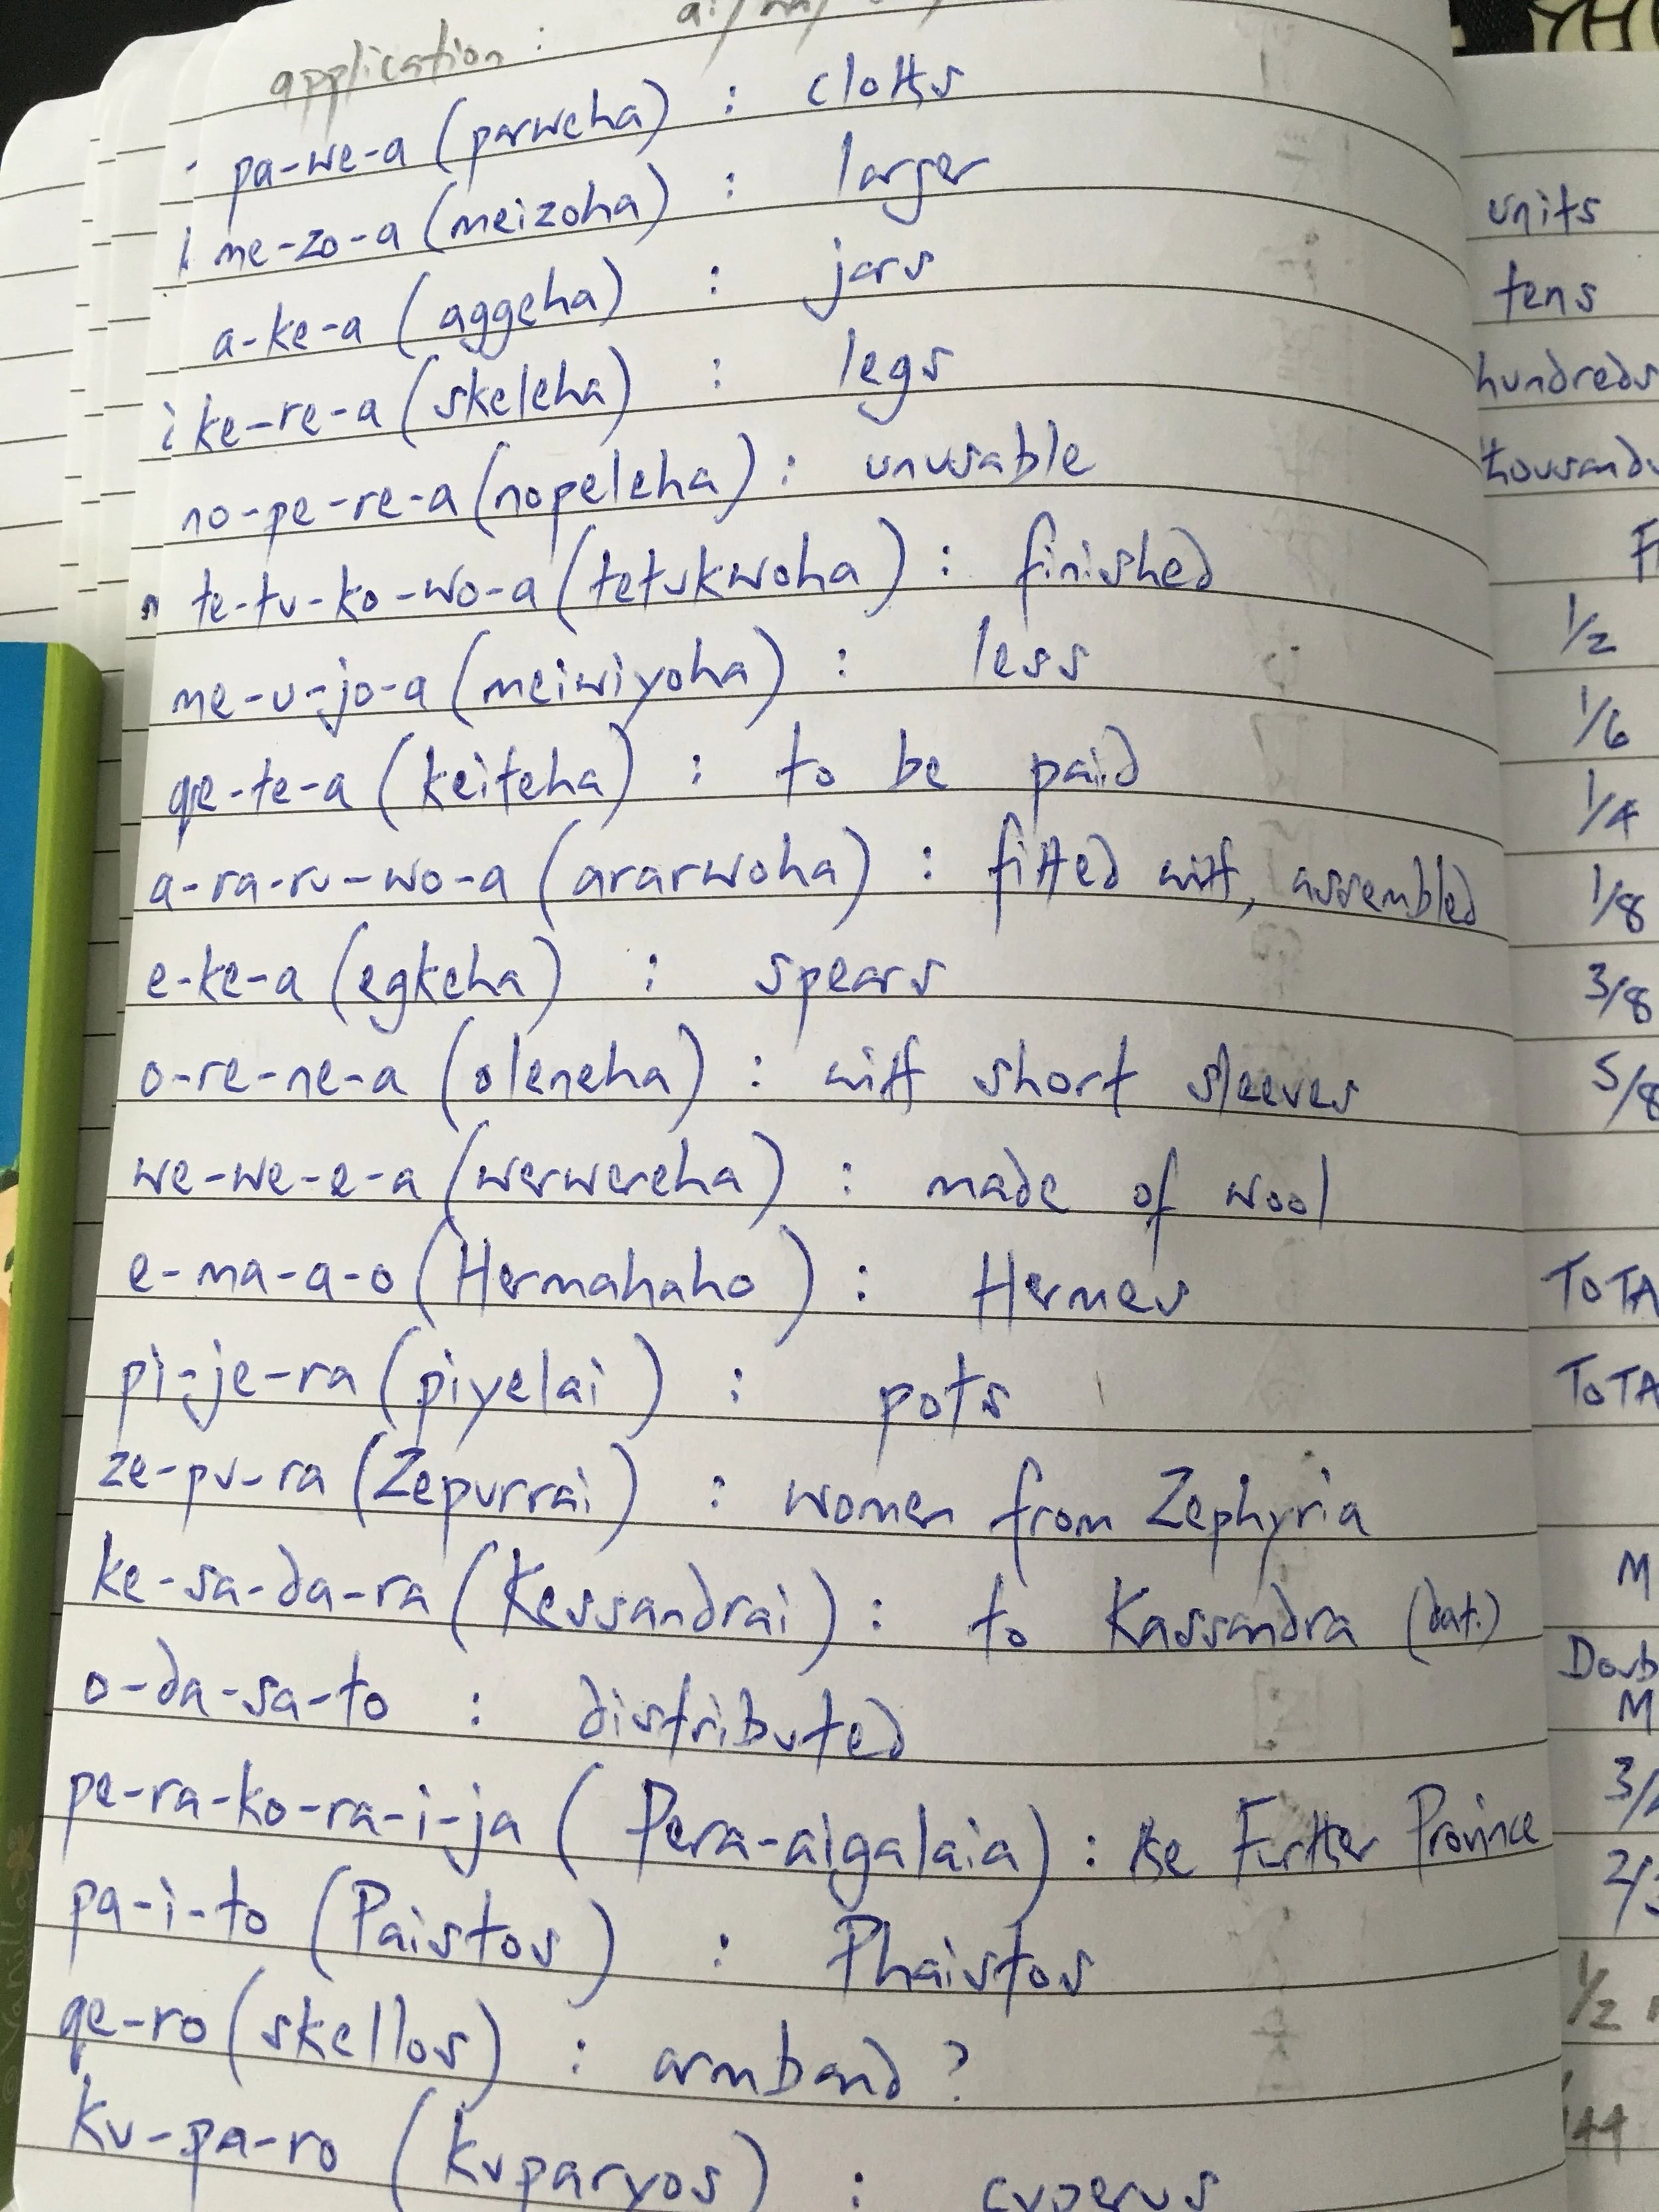 application :
pa-we-a (parweha) : cloths
me-zo-a (meizoha) : larger
a-ke-a (aggeha) : jars
ke-re-a (skeleha) : legs
no-pe-re-a (nopeleha) : unusable
te-tu-ko-wo-a (tetukwoha) : finished
me-u-jo-a (meiwiyoha) : less
qe-te-a (keiteha) : to be paid
a-ra-ru-wo-a (ararwoha) : fitted with, assembled
e-ke-a (egkeha) : spears
o-re-ne-a (oleneha) : with short sleeves
we-we-e-a (werwereha) : made of wool
e-ma-a-o (Hermahaho) : Hermes
pi-je-ra (piyelai) : pots
ze-pu-ra (Zepurrai) : women from Zephyria
ke-sa-da-ra (Kessandrai) : to Kassandra (dat.)
o-da-sa-to : distributed
pe-ra-ko-ra-i-ja (Pera-aigalaia) : the Further Province
pa-i-to (Paistos) : Phaistos
qe-ro (skellos) : armband ?
ku-pa-ro (kuparyos) : cyperus
units
tens
hundreds
thousands
1/2
1/6
1/4
1/8
3/8
5/8
TOTA
TOTA
M
Doub
M
1/2